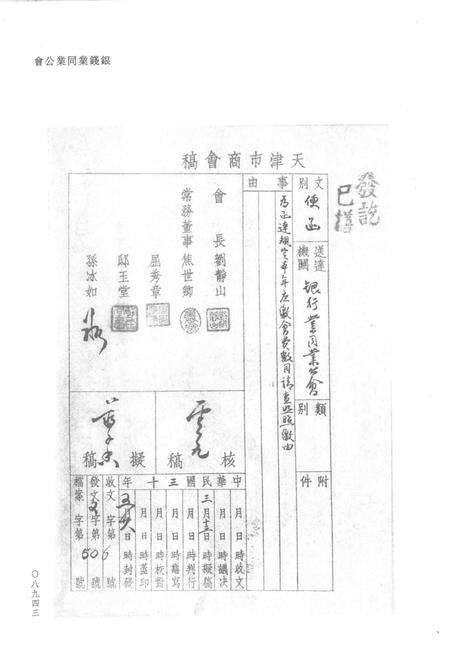 銀錢業同業公會
天津市商會稿
文別
便函
送達機關
銀行業同業公會
類別
附件
事由
為函達規定本年度繳會費數目請查照照繳由
會長劉靜山
常務董事焦世卿
屈秀章
邸玉堂
孫冰如
核稿
擬稿
中華民國三十年
月日時收文
月日時議決
三月十三日時擬稿
月日時判行
月日時繕寫
月日時校對
月日時蓋印
月日時封發
收文字第號
發文字第506號
檔案字第號
〇八九四三